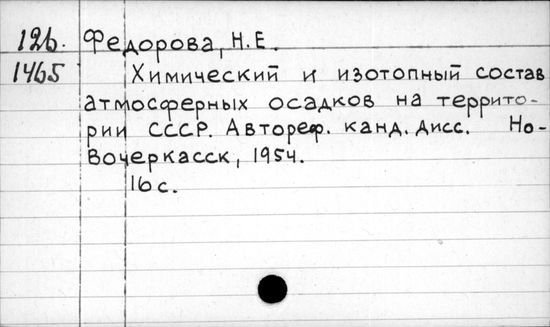 126. Федорова, Н.Е.
1465 Химический и изотопный состав
атмосферных осадков на террито-
рии СССР. Автореф. канд. дисс. Но-
вочеркасск, 1954.
16 с.